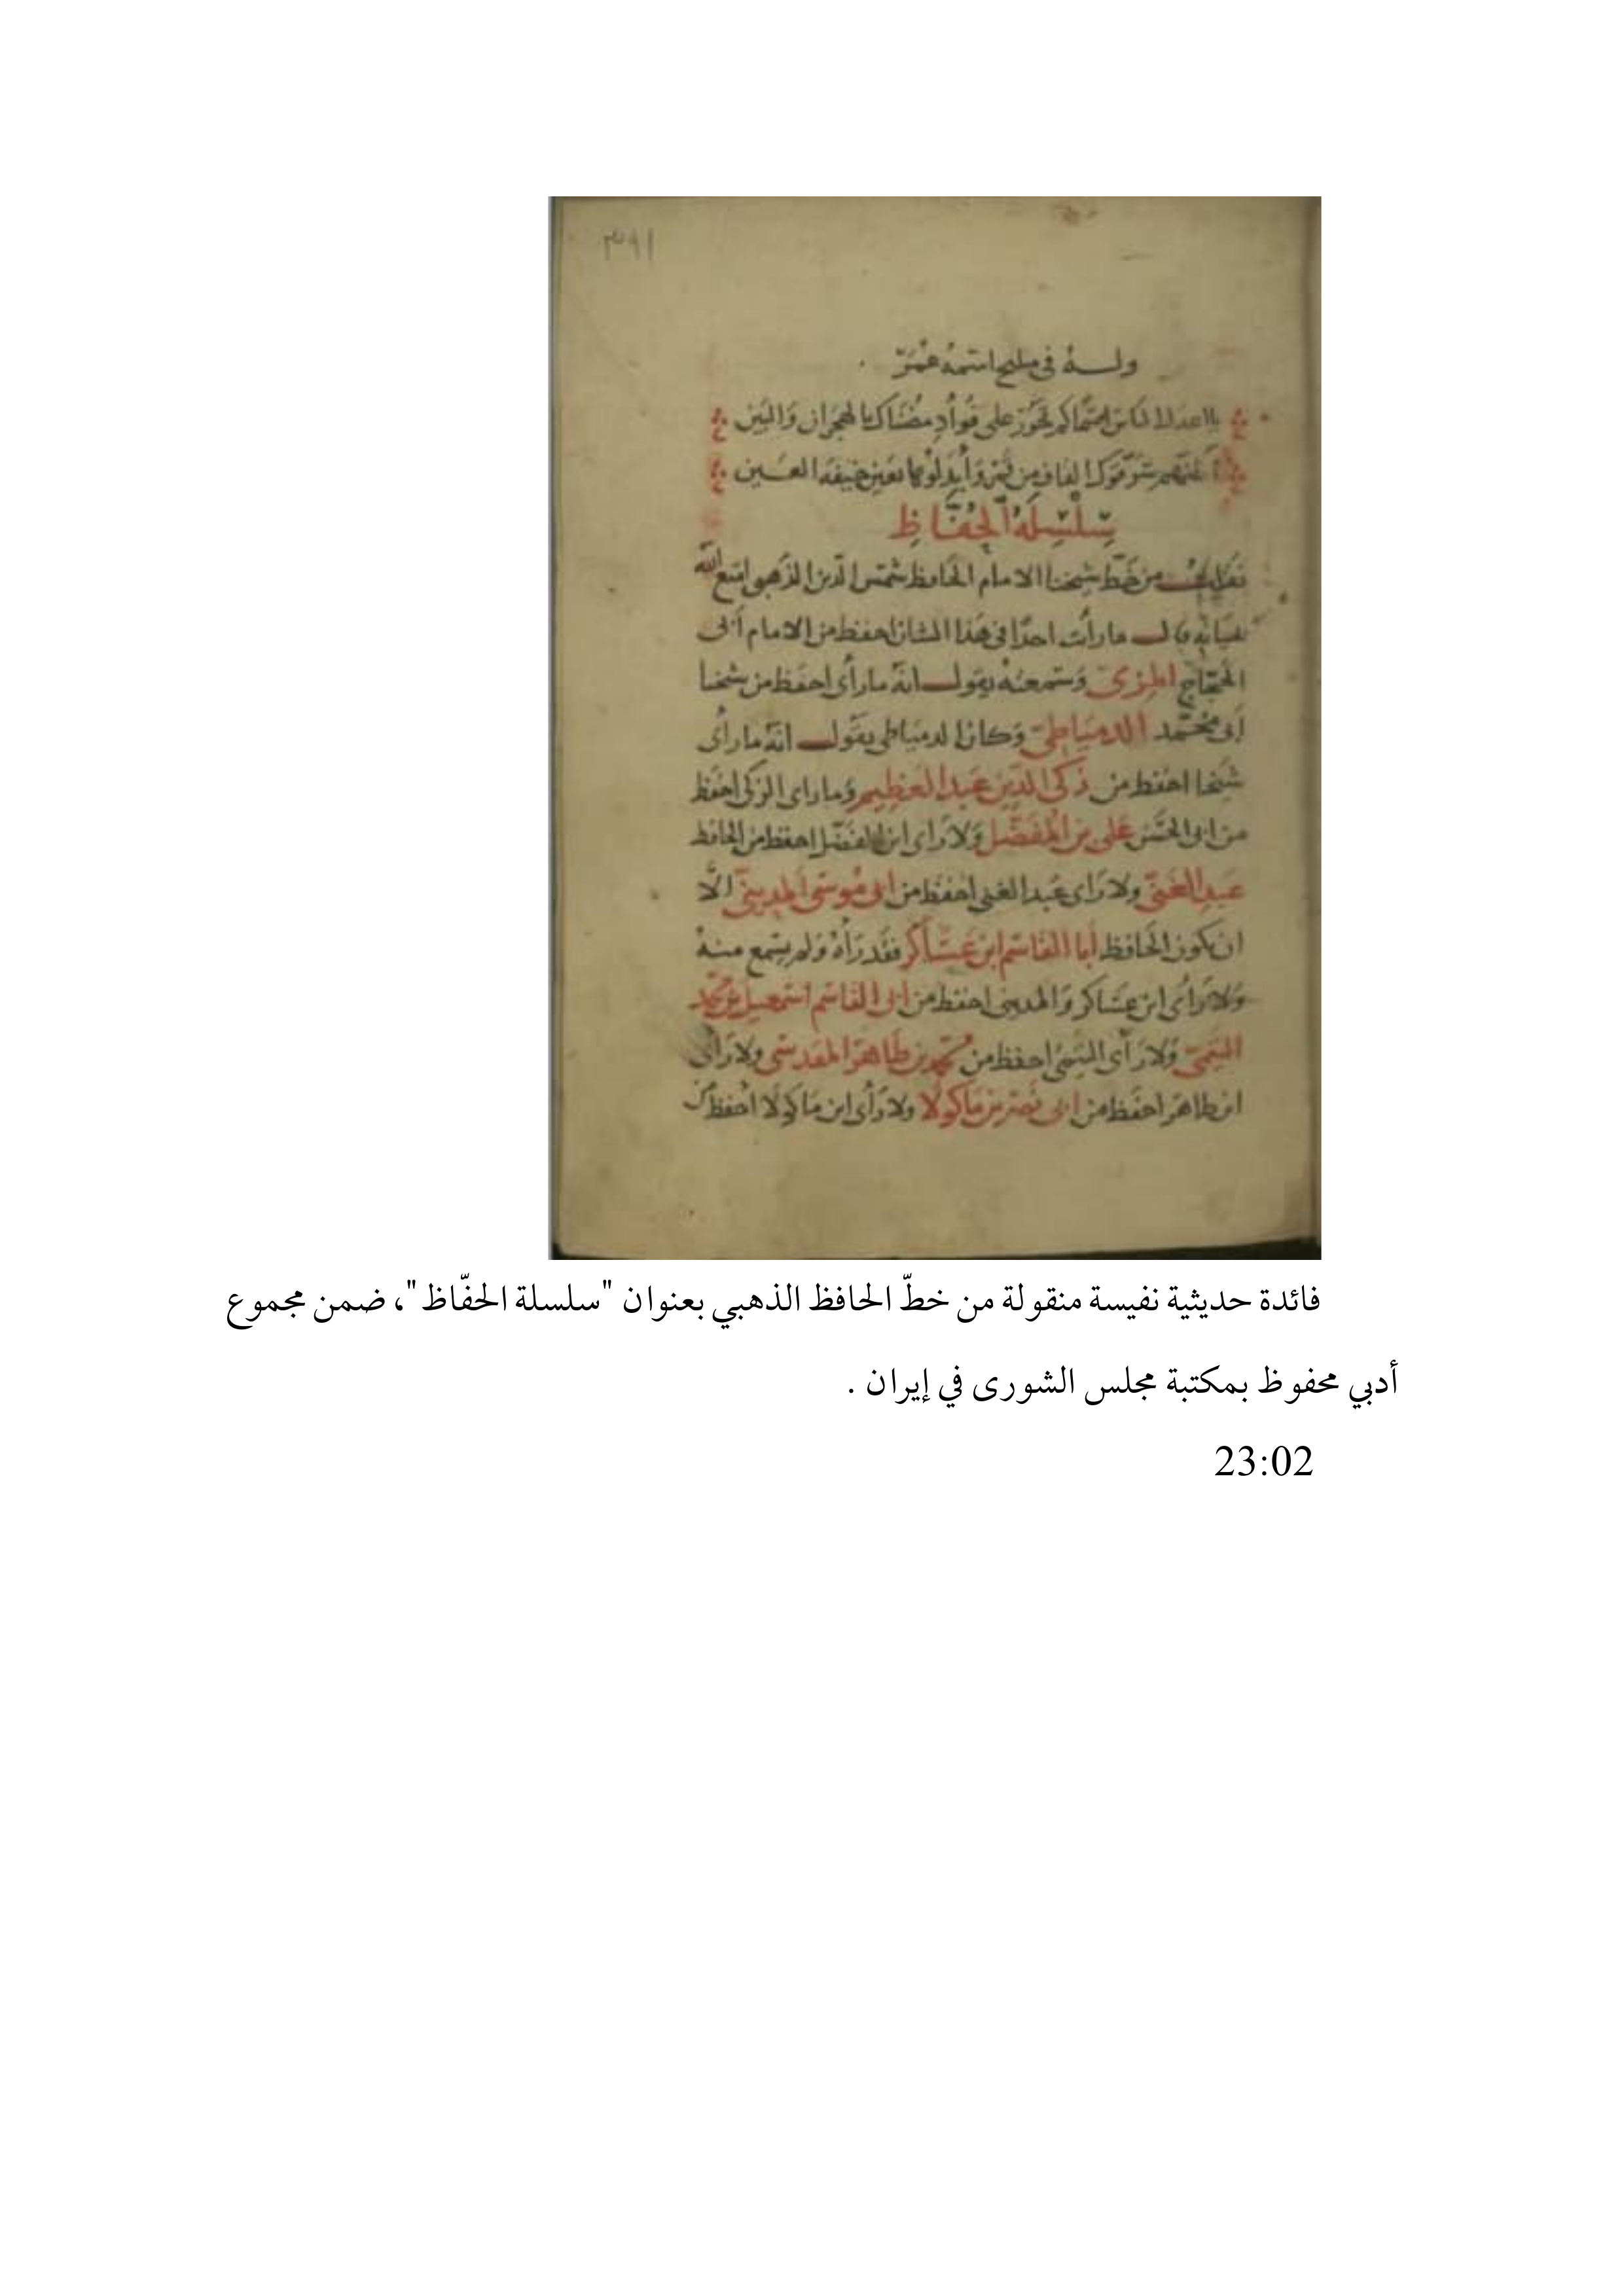 ٣٩١
وله في مليح اسمه عمر
يا اعدل الناس كم تجور على فؤاد مضناك بالهجران والبين
من قمر وأبدلوها بعين خيفة العين
سلسلة الحفاظ
نقلت من خط شيخنا الامام الحافظ شمس الدين الذهبي امتع الله
بحياته قال ما رأيت احدا في هذا الشان احفظ من الامام أبى
الحجاج المزى وسمعته يقول انه ما رأى احفظ من شيخنا
أبى محمد الدمياطى وكان الدمياطى يقول انه ما رأى
شيخا احفظ من زكى الدين عبد العظيم وما راى الزكى احفظ
من ابى الحسن على بن المفضل ولا راى ابن المفضل احفظ من الحافظ
عبد الغنى ولا راى عبد الغنى احفظ من ابى موسى المدينى الا
ان يكون الحافظ أبا القاسم ابن عساكر فقد رآه ولم يسمع منه
ولا رأى ابن عساكر والمدينى احفظ من ابى القاسم اسمعيل بن محمد
التيمى ولا رأى التيمى احفظ من محمد بن طاهر المقدسى ولا رأى
ابن طاهر احفظ من ابى نصر بن ماكولا ولا رأى ابن ماكولا احفظ من
فائدة حديثية نفيسة منقولة من خطّ الحافظ الذهبي بعنوان "سلسلة الحفّاظ"، ضمن مجموع
أدبي محفوظ بمكتبة مجلس الشورى في إيران .
23:02